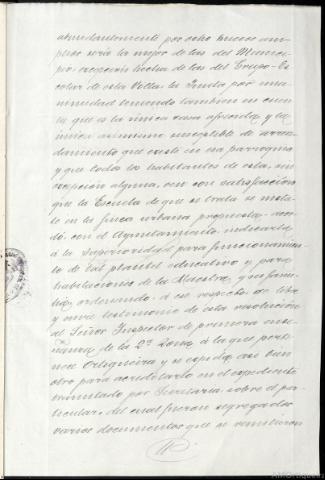 abundantemente por ocho huecos am-
plios sería la mejor de las del Munici-
pio, excepción hecha de las del Grupo Es-
colar de esta Villa. La Junta por una-
nimidad teniendo tambien en cuen-
ta que es la única casa ofrecida y la
única asimismo susceptible de arren-
damiento que existe en esa parroquia
y que todos los habitantes de esta, sin
excepción alguna, ven con satisfacción
que la Escuela de que se trata se insta-
le en la finca urbana propuesta, acor-
dó, con el Ayuntamiento, indicarla
á la Superioridad para funcionamien-
to de tal plantel educativo y para
habitaciones de la Maestra y su fami-
lia, ordenando á ese respecto se libre
y envie testimonio de esta resolución
al Señor Inspector de primera ense-
ñanza de la 2ª Zona á la que perte-
nece Ortigueira y se expida asi bien
otro para acreditarlo en el expediente
tramitado por Secretaria sobre el par-
ticular, del cual fueron segregados
varios documentos que se remitieron